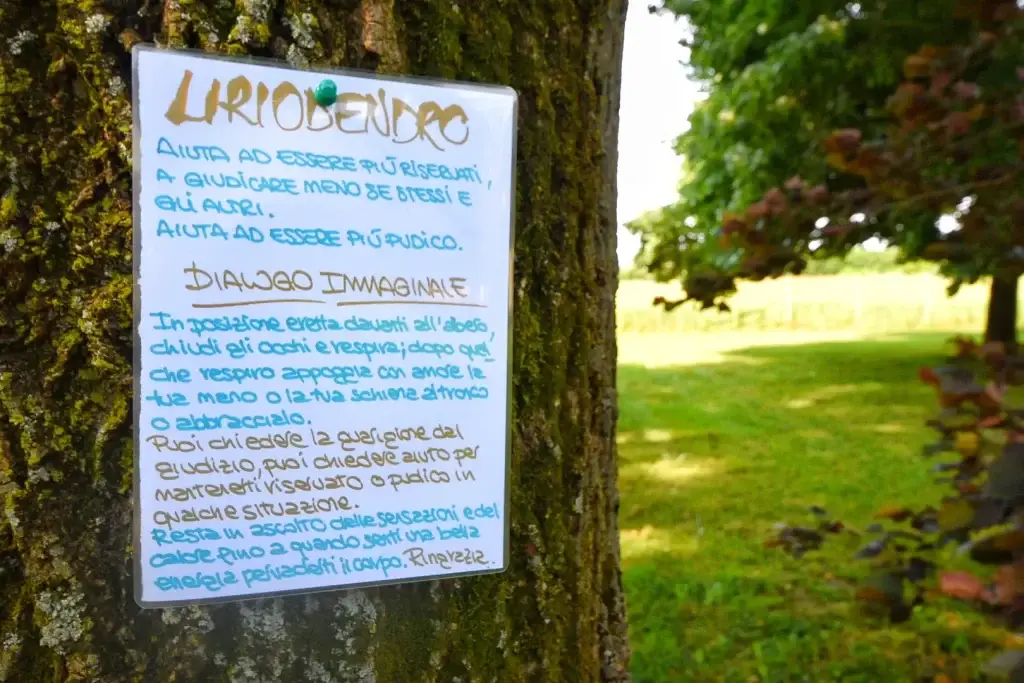 LIRIODENDRO
AIUTA AD ESSERE PIÙ RISERVATI,
A GIUDICARE MENO SE STESSI E
GLI ALTRI.
AIUTA AD ESSERE PIÙ PUDICO.
DIALOGO IMMAGINALE
In posizione eretta davanti all'albero,
chiudi gli occhi e respira; dopo qual
che respiro appoggia con amore la
tua mano o la tua schiena al tronco
o abbraccialo.
Puoi chiedere la guarigione dal
giudizio, puoi chiedere aiuto per
mantenerti riservato o pudico in
qualche situazione.
Resta in ascolto delle sensazioni e del
calore fino a quando senti una bella
energia pervaderti il corpo. Ringrazia.